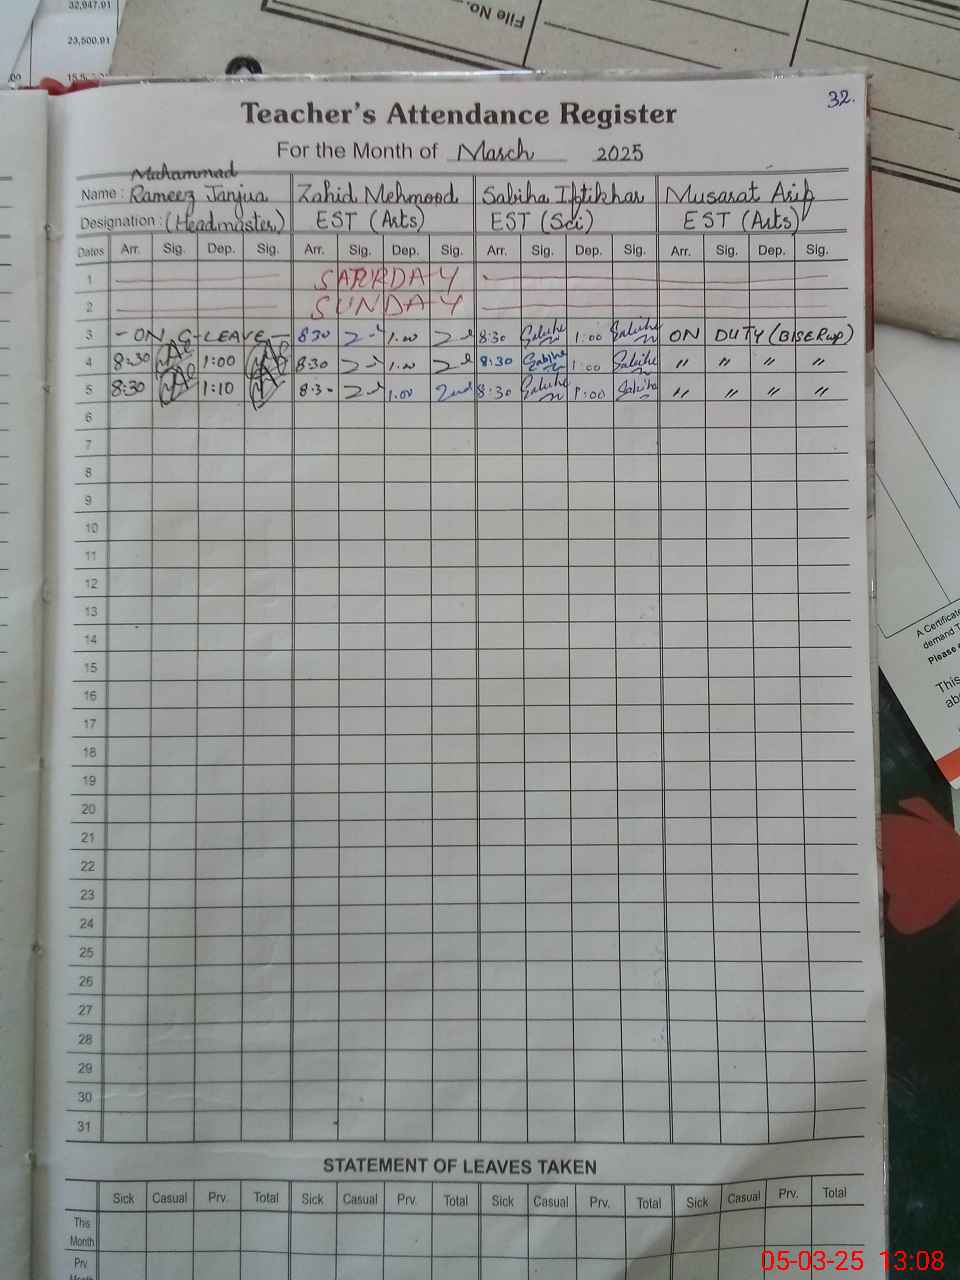 32,947.91
23,500.91
File No.
32.
Teacher's Attendance Register
For the Month of March 2025
Muhammad
Name : Rameez Janjua Zahid Mehmood Sabiha Iftikhar Musarat Arif
Designation : (Headmaster) EST (Arts) EST (Sci) EST (Arts)
Dates Arr. Sig. Dep. Sig. Arr. Sig. Dep. Sig. Arr. Sig. Dep. Sig. Arr. Sig. Dep. Sig.
1 SATURDAY
2 SUNDAY
3 - ON C-LEAVE - 8:30 1.00 8:30 Sabiha 1:00 Sabiha ON DUTY (BISE RWP)
4 8:30 1:00 8:30 1.00 8:30 Sabiha 1:00 Sabiha " " " "
5 8:30 1:10 8:30 1.00 8:30 Sabiha 1:00 Sabiha " " " "
6
7
8
9
10
11
12
13
14
15
16
17
18
19
20
21
22
23
24
25
26
27
28
29
30
31
STATEMENT OF LEAVES TAKEN
Sick Casual Prv. Total Sick Casual Prv. Total Sick Casual Prv. Total Sick Casual Prv. Total
This
Month
Prv
A Certificate
demand
Please
This
05-03-25 13:08